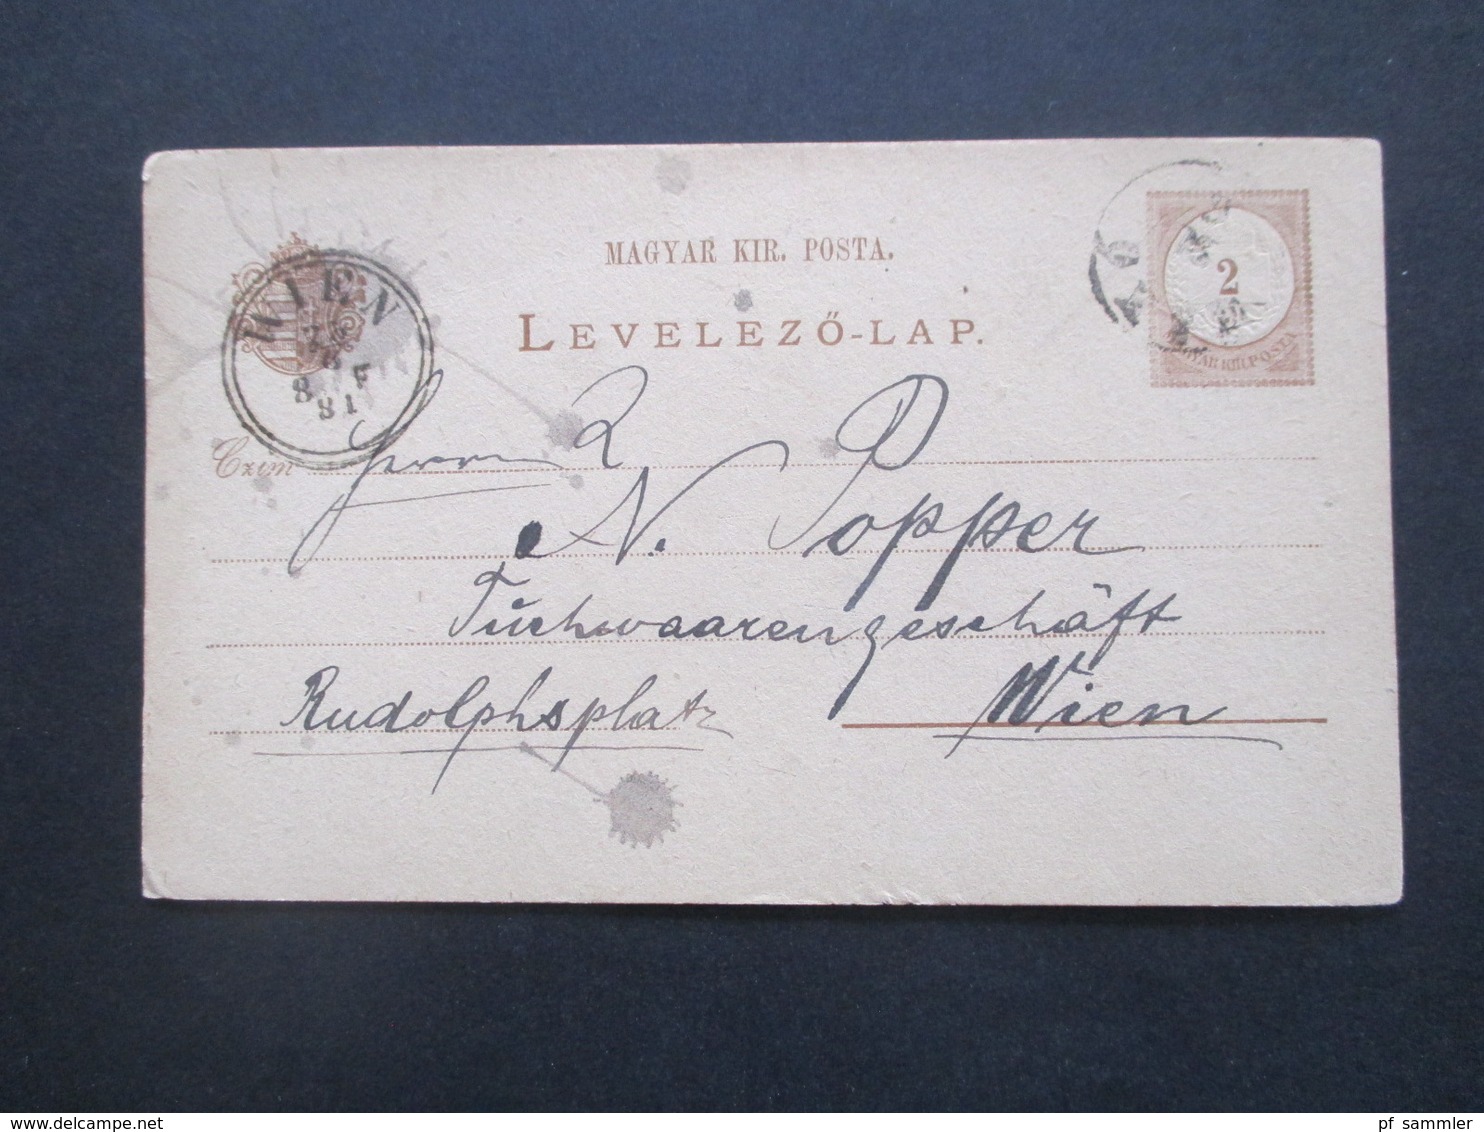 MAGYAR KIR. POSTA.
LEVELEZŐ-LAP.
2
MAGYAR KIR. POSTA
WIEN
8 F
81
Czim
Herrn
N. Popper
Tuchwaarengeschäft
Rudolphsplatz
Wien
www.delcampe.net
pf_sammler